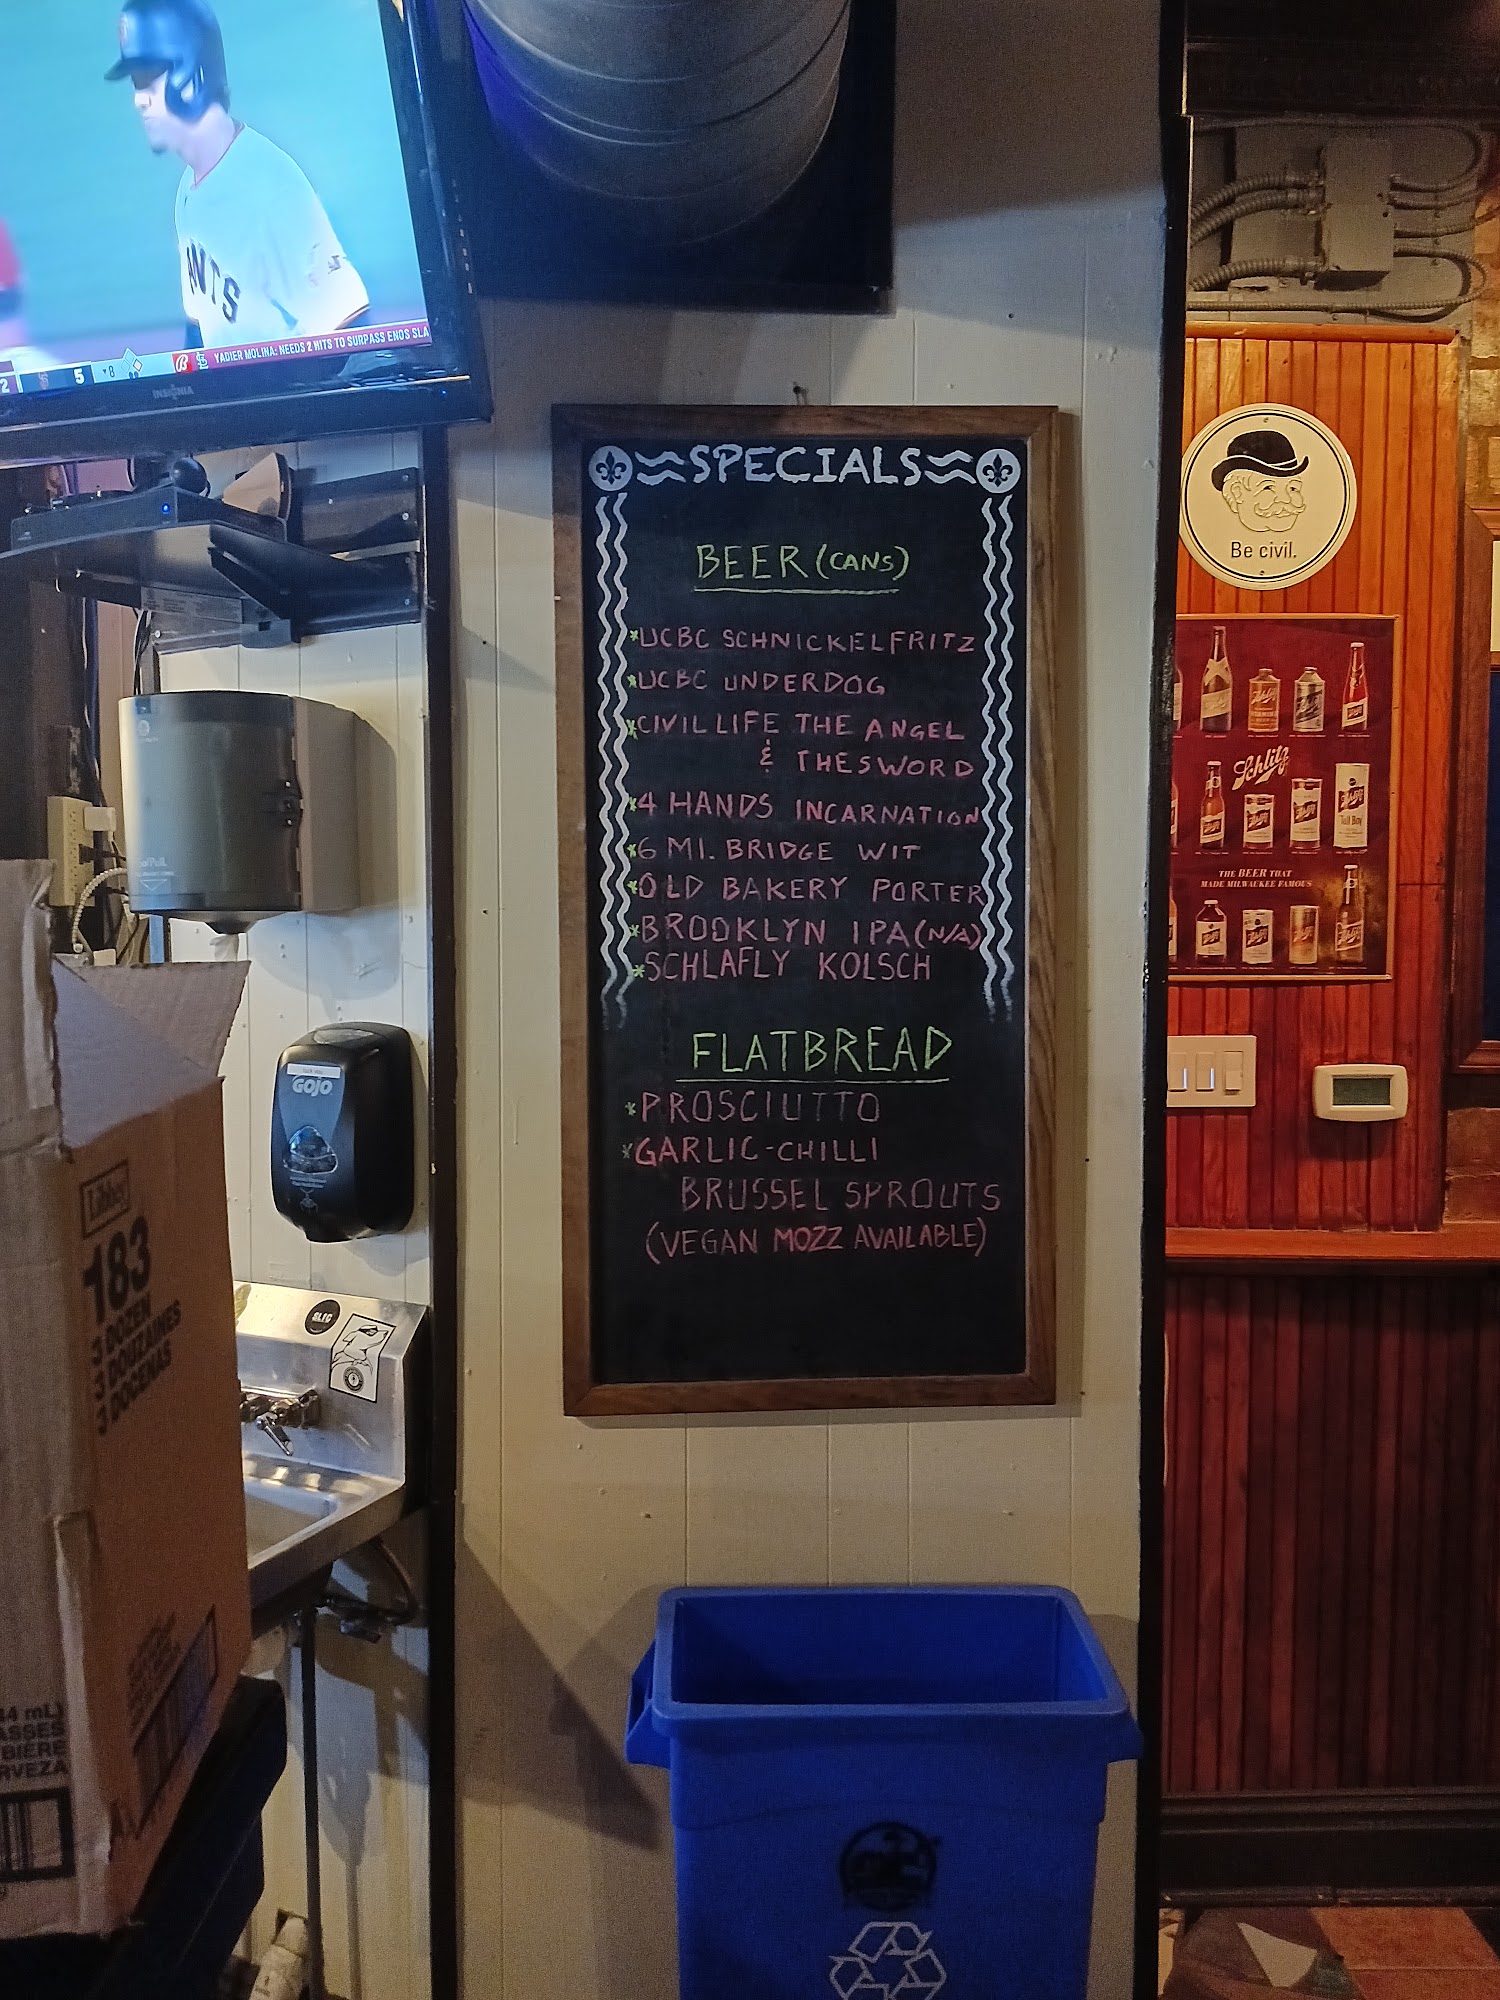 ANTS
YADIER MOLINA: NEEDS 2 HITS TO SURPASS ENOS SLA
2
5
8
INSIGNIA
≈SPECIALS≈
BEER (CANS)
*UCBC SCHNICKELFRITZ
*UCBC UNDERDOG
*CIVIL LIFE THE ANGEL
& THE SWORD
*4 HANDS INCARNATION
*6 MI. BRIDGE WIT
*OLD BAKERY PORTER
*BROOKLYN IPA (N/A)
*SCHLAFLY KOLSCH
FLATBREAD
*PROSCIUTTO
*GARLIC-CHILLI
BRUSSEL SPROUTS
(VEGAN MOZZ AVAILABLE)
Be civil.
Schlitz
Tall Boy
THE BEER THAT
MADE MILWAUKEE FAMOUS
GOJO
SLTC
Libbey
183
3 DOZEN
3 DOUZAINES
3 DOCENAS
44 mL)
ASSES
BIERE
RVEZA